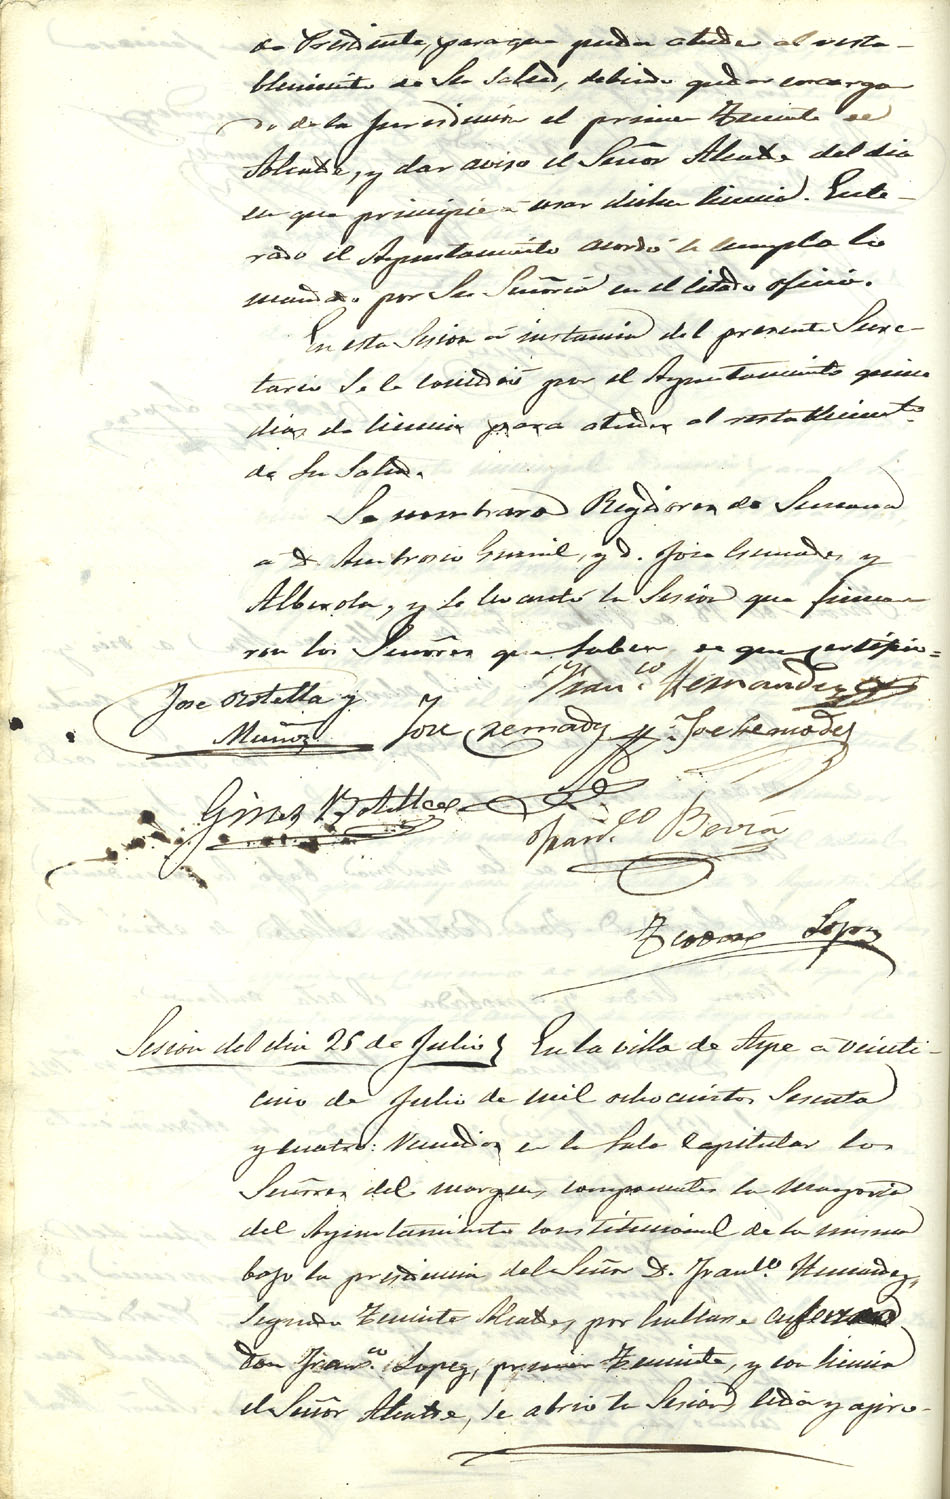 do Presidente, para que pueda atender al resta-
blecimiento de su salud, debiendo quedar encarga
do de la Jurisdiccion el primer Teniente de
Alcalde, y dar aviso el Señor Alcalde del dia
en que principie á usar dicha licencia. Ente-
rado el Ayuntamiento acordó se cumpla lo
mandado por Su Señoria en el citado oficio.
En esta Sesion á instancia del presente Secre-
tario se le concedió por el Ayuntamiento quince
dias de licencia para atender al restablecimiento
de su salud.
Se nombraron Regidores de Semana
a D. Ambrosio , y D. Jose Cremades y
Alberola, y se levantó la Sesion que firma-
ron los Señores que saben, de que certifico=
Jose Botella y
Muñoz
Franco Hernandez
Jose Cremades
Jose Cremades
Gines Botella
Franco Beviá
Teodoro Lopez
Sesion del dia 25 de Julio} En la villa de Aspe á veinti-
cinco de Julio de mil ochocientos Sesenta
y cuatro: reunidos en la Sala Capitular los
Señores del margen, componentes la mayoria
del Ayuntamiento constitucional de la misma
bajo la presidencia del Señor D. Franco Hernandez,
Segundo Teniente Alcalde, por hallarse enfermo
Don Franco Lopez, primer Teniente, y con licencia
el Señor Alcalde, se abrio la Sesion, leida y apro-